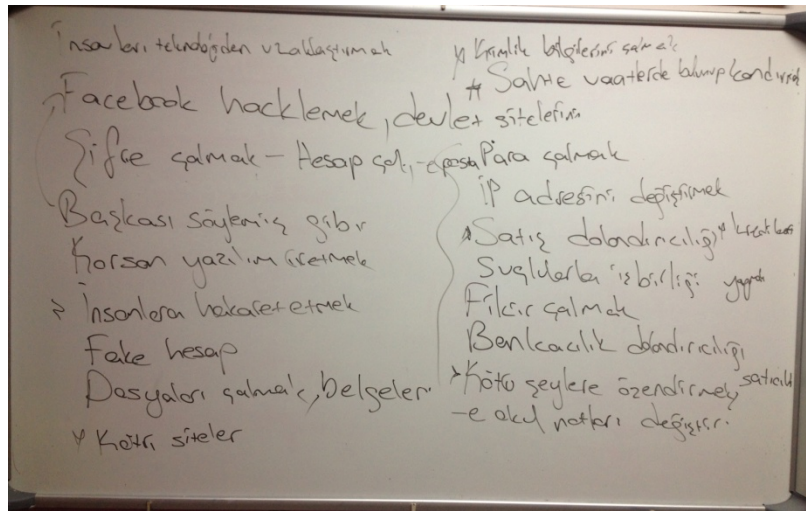 İnsanları teknolojiden uzaklaştırmak
Facebook hacklemek, devlet sitelerini
Şifre çalmak - Hesap çal, - eposta
Başkası söylemiş gibi
Korsan yazılım üretmek
İnsanlara hakaret etmek
Fake hesap
Dosyaları çalmak, belgeler
* Kötü siteler
* Kimlik bilgilerini çalmak
* Sahte vaatlerde bulunup kandırmak
Para çalmak
İP adresini değiştirmek
* Satış dolandırıcılığı * kredi kartı
Suçlularla işbirliği yapmak
Fikir çalmak
Bankacılık dolandırıcılığı
* Kötü şeylere özendirmek, satıcılık
- e okul notları değiştir.